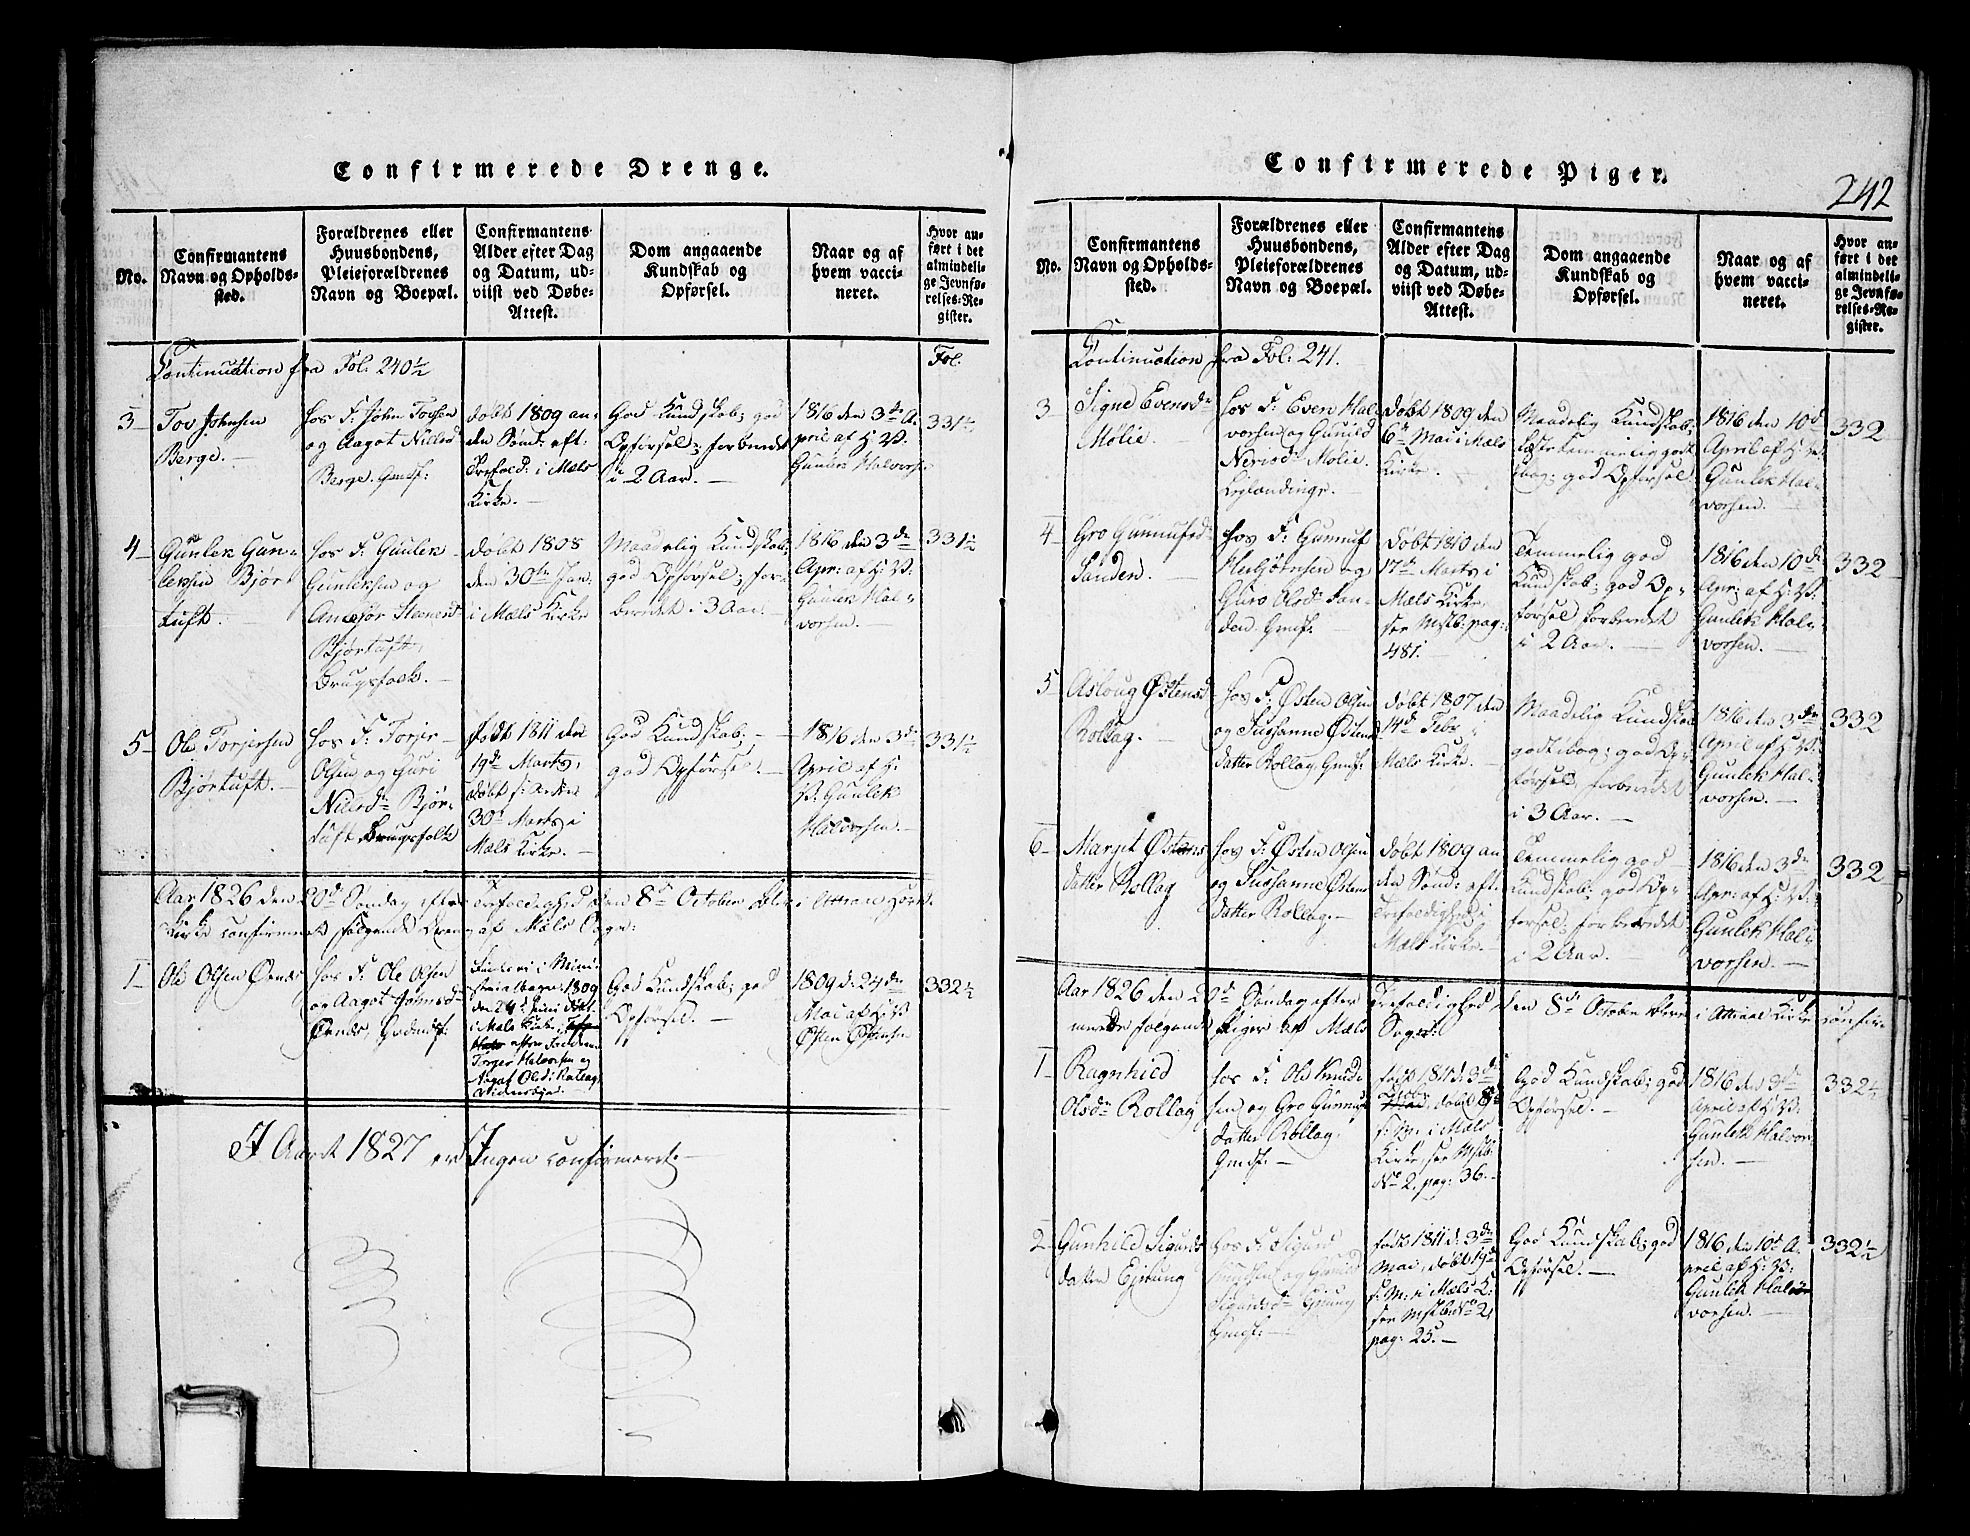 Confirmerede Drenge.
No.
Confirmantens
Navn og Opholds-
sted.
Forældrenes eller
Huusbondens,
Pleieforældrenes
Navn og Boepæl.
Confirmantens
Alder efter Dag
og Datum, ud-
viist ved Døbe-
Attest.
Dom angaaende
Kundskab og
Opførsel.
Naar og af
hvem vacci-
neret.
Hvor an-
ført i det
almindeli-
ge Jevnfø-
relses-Re-
gister.
Continuation fra Fol: 240½
Fol.
3
Tov Johnsen
Berge.
hos F: John Tovsen
og Aagot Nilsd
Berge. Gmdf:
døbt 1809 an-
den Sønd: eft:
Trefold: i Mæls
Kirke.
God Kundskab; god
Opførsel; forberedt
i 2 Aar.
1816 den 3die A-
pril af H: V:
Gunlek Halvors:
331½
4
Gunlek Gun-
leksen Bjør-
tuft.
hos F: Gunlek
Gunleksen og
Steenersd
Bjørtuft,
Brugsfolk.
døbt 1808
den 30te Jan:
i Mæls Kirke
Maadelig Kundskab;
god Opførsel; for-
beredt i 3 Aar.
1816 den 3die
Apr: af H: V:
Gunlek Hal-
vorsen.
331½
5
Ole Torjersen
Bjørtuft.
hos F: Torjer
Olsen og Guri
Nilsdr Bjør-
tuft Brugsfolk
født 1811 den
19de Marts,
døbt
30te Marts i
Mæls Kirke.
God Kundskab;
god Opførsel.
1816 den 3die
April af H:
V: Gunlek
Halvorsen.
331½
Aar 1826 den 20de Søndag efter Trefoldighed den 8de October blev i Attraae Hoved
Kirke confirmeret følgende Dreng af Mæls Sogn:
1
Ole Olsen Ørnes
hos F: Ole Olsen
og Aagot Johnsd
Ørnes, Gmdf:
i Mini-
sterialbogen: 1809
den 24de Juni døbt
i Mæls Kirke,
Torjer Halvorsen og
Aagot Olsd: Rollag
Vidnesbyrd.
God Kundskab; god
Opførsel.
1809 d: 24de
Mai af H: V:
Østen Østensen
332½
I Aaret 1827 er Ingen confirmeret.
Confirmerede Piger.
242
No.
Confirmantens
Navn og Opholds-
sted.
Forældrenes eller
Huusbondens,
Pleieforældrenes
Navn og Boepæl.
Confirmantens
Alder efter Dag
og Datum, ud-
viist ved Døbe-
Attest.
Dom angaaende
Kundskab og
Opførsel.
Naar og af
hvem vacci-
neret.
Hvor an-
ført i det
almindeli-
ge Jevnfø-
relses-Re-
gister.
Continuation fra Fol: 241.
3
Signe Evensdr
Mølie.
hos F: Even Hal-
vorsen og Gunild
Nerisdr Mølie.
Leylændinge.
døbt 1809 den
6te Mai i Mæls
Kirke.
Maadelig Kundskab;
læste temmelig godt
i bog; god Opførsel
1816 den 10de
April af H: V:
Gunlek Hal-
vorsen.
332
4
Gro Gunnufsdr
Sanden.
hos F: Gunnuf
Halvorsen og
Guro Olsdr San-
den. Gmdf:
døbt 1810 den
17de Marts i
Mæls Kirke,
see Mstb: pag:
481.
Temmelig god
Kundskab; god Op-
førsel forberedet
i 2 Aar.
1816 den 10de
Apr: af H: V:
Gunlek Hal-
vorsen.
332
5
Asloug Østensd
Rollag.
hos F: Østen Olsen
og Sussanne Østens-
datter Rollag, Gmdf:
døbt 1807 den
14de Febr i
Mæls Kirke.
Maadelig Kundskab
godt i bog; god Op-
førsel, forberedet
i 3 Aar.
1816 den 3die
April af H: V:
Gunlek Hal-
vorsen.
332
6
Margit Østens
datter Rollag
hos F: Østen Olsen
og Sussanne Østens
datter Rollag.
døbt 1809 an
den Sønd: eft:
Trefoldighed i
Mæls Kirke.
Temmelig god
Kundskab; god Op-
førsel; forberedet
i 2 Aar.
1816 den 3die
Apr: af H: V:
Gunlek Hal-
vorsen.
332
Aar 1826 den 20de Søndag efter Trefoldighed den 8de October bleve i Attraae Kirke confir-
merede følgende Piger af Mæls Sogn:
1
Ragnhild
Olsdr Rollag
hos F: Ole Knud-
sen og Gro Gunnufs
datter Rollag,
Gmdf:
født 1811 d: 3die
døbt 8de
s: M: i Mæls
Kirke, see Mstb:
No 2, pag: 36.
God Kundskab; god
Opførsel.
1816 den 3die
April af H: V:
Gunlek Halvor-
sen.
332½
2
Gunhild Sigurds
datter Ejstung
hos F: Sigurd
Knudsen og Gunild
Sigurdsdr
Gmdf:
født 1811 d: 3die
Mai, døbt 19de
s: M: i Mæls K:
see Mstb: No 2,
pag: 25.
God Kundskab; god
Opførsel.
1816 den 10de A-
pril af H: V:
Gunlek Hal-
vorsen.
332½